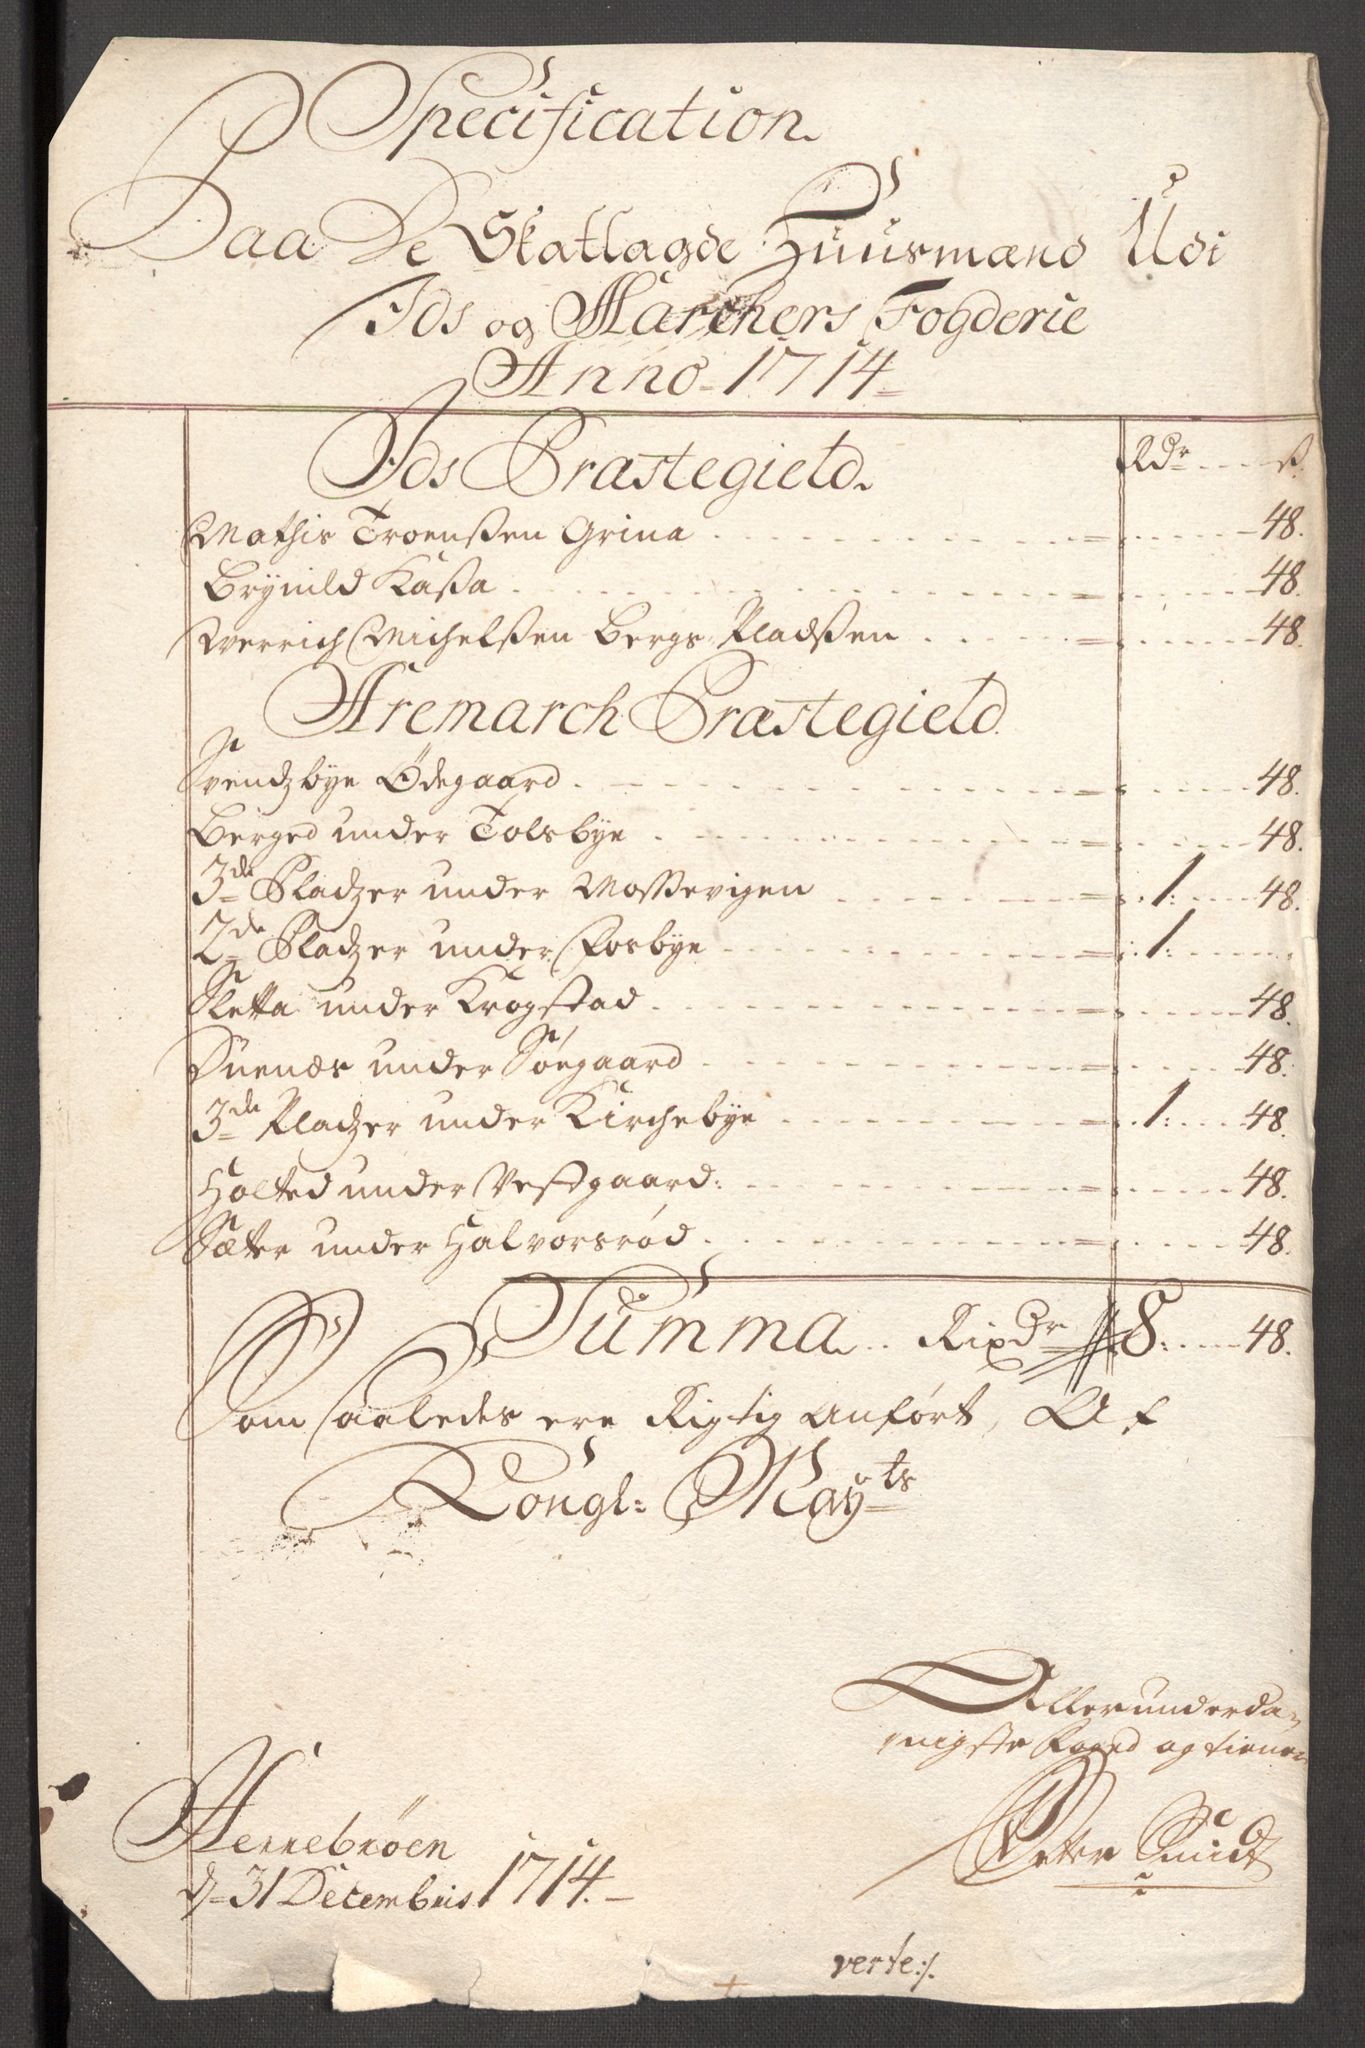 Specification
Paa De Skatlagde Huusmænd Udi
Ids og Marchers Fogderie
Anno 1714
Ids Præstegield. Rdr ß.
Mathis Troenßen Grina 48.
Brynild Kaßa 48.
Werrich Michelßen Bergs Pladßen 48.
Aremarch Præstegield.
Svendzbye Ødegaard 48.
Berged under Tolsbye 48.
3de Pladzer under Moßevigen 1: 48.
2de Pladzer under Fosbye 1:
Sletta under Krogstad 48.
Duenæs under Søegaard 48.
3de Pladzer under Kirchebye 1: 48.
Holted under Vestgaard: 48.
Sæter under Halvorsrød 48.
Summa Rixdr 8: 48.
Som saaledes ere Rigtig Anført, Af
Kongl: Mayts
Allerunderda-
nigste Foged og tiener
Hennebrøen
d 31 Decembris 1714.
Peter Smidt
verte:/.